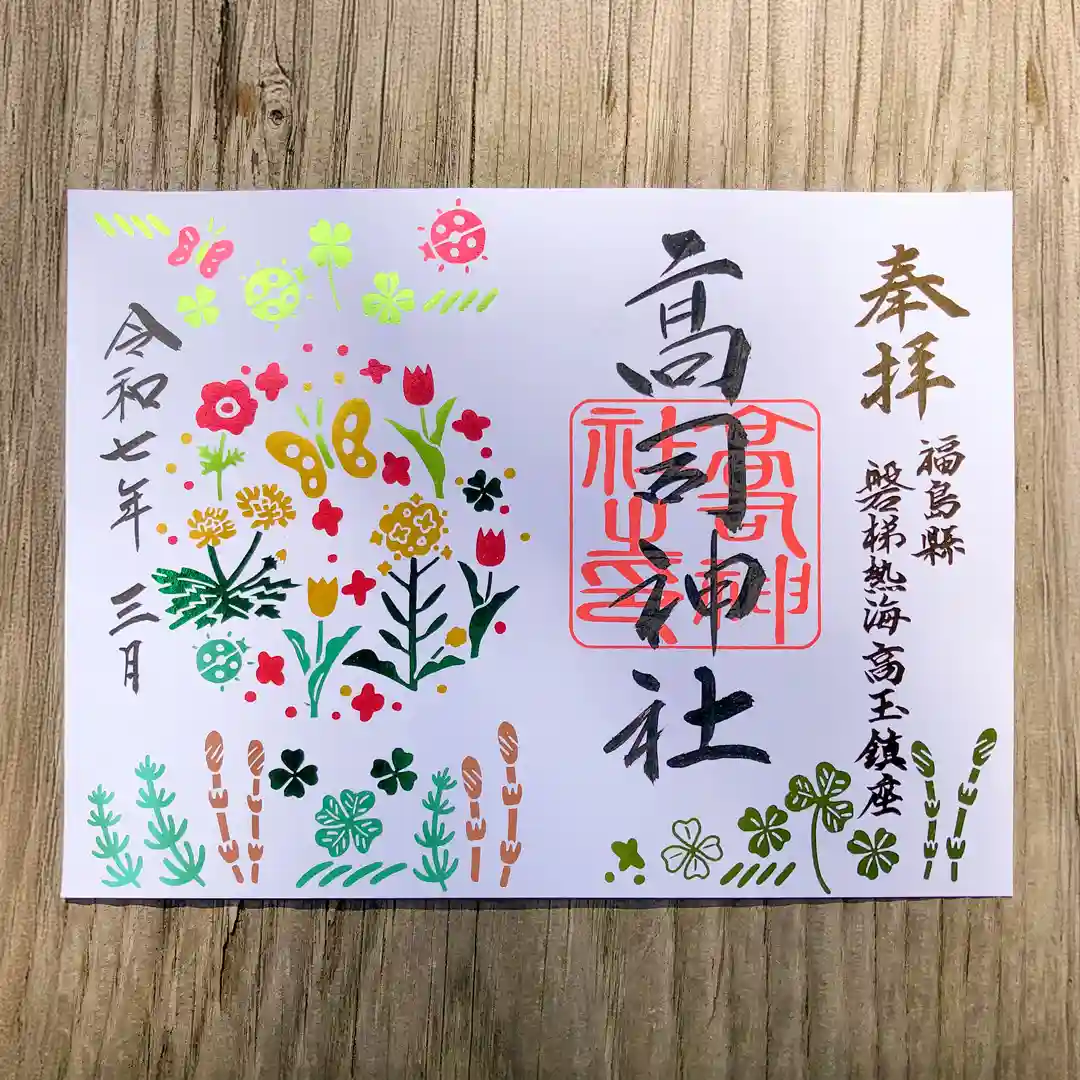 奉拝
福島縣
磐梯熱海高玉鎮座
高司神社
高司神
社之印
令和七年 三月